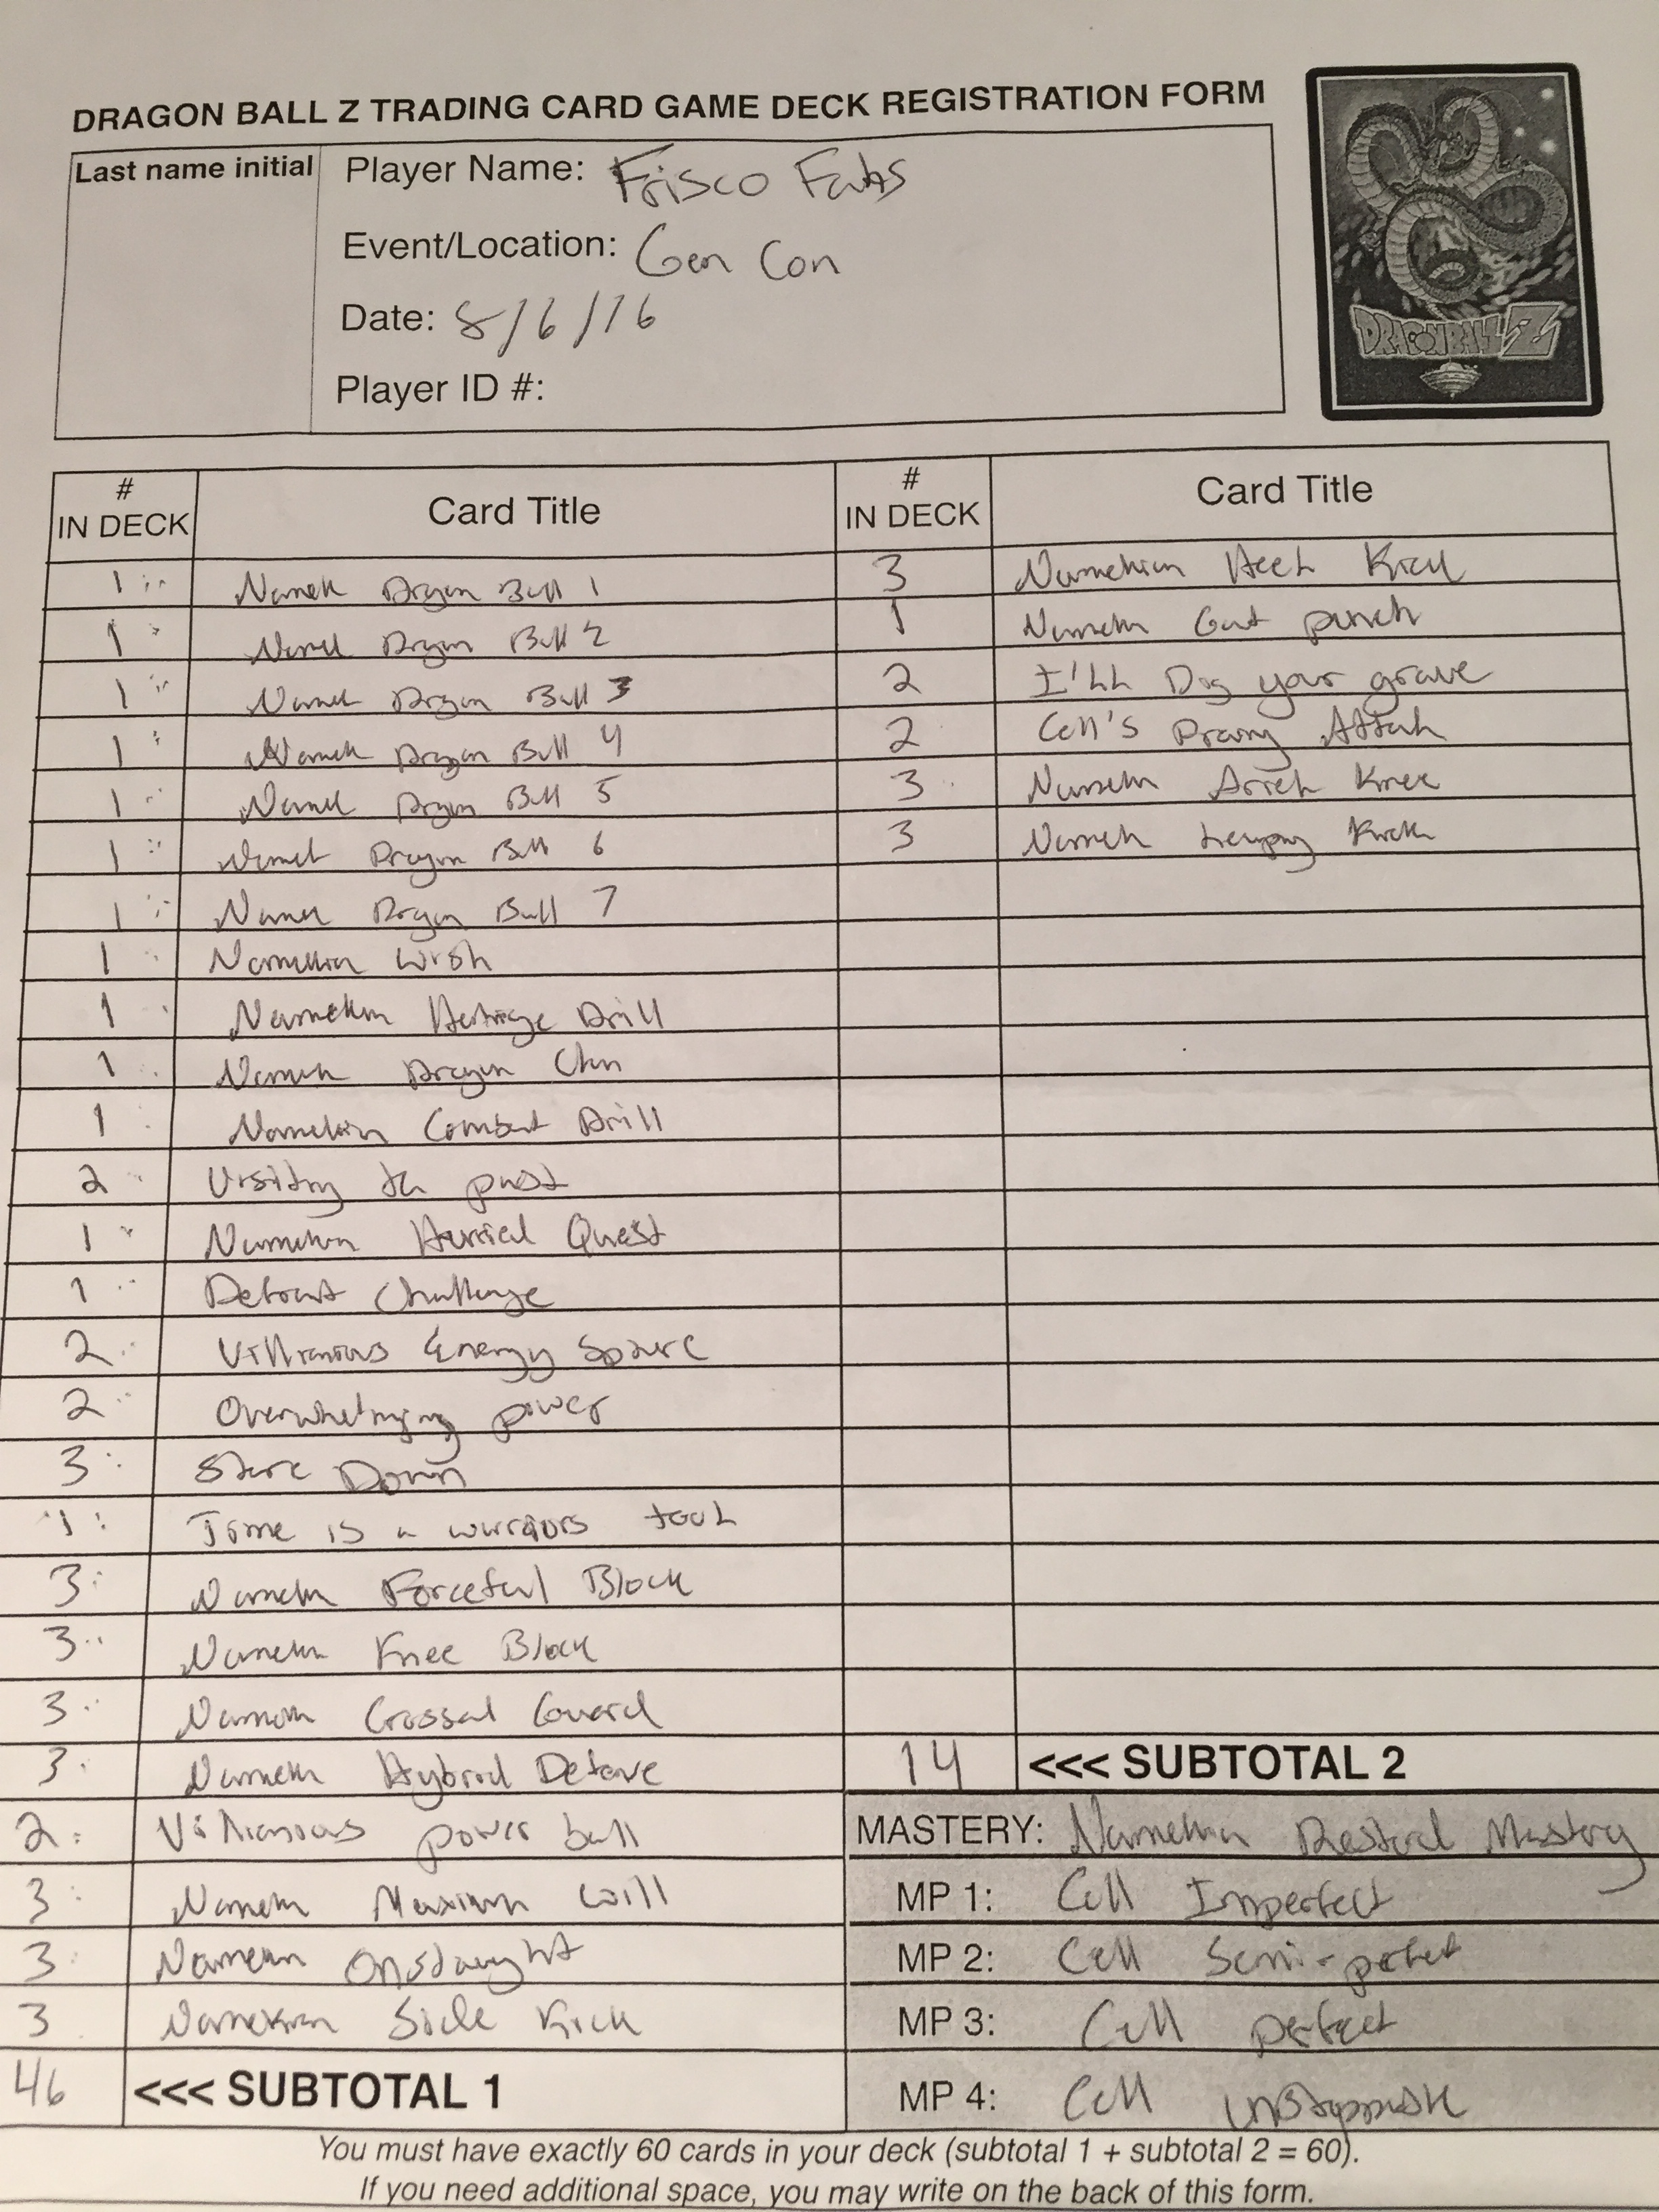 DRAGON BALL Z TRADING CARD GAME DECK REGISTRATION FORM
Last name initial
Player Name: Frisco Fabs
Event/Location: Gen Con
Date: 8/6/16
Player ID #:
DRAGONBALL Z
# IN DECK Card Title
1 Namek Dragon Ball 1
1 Namek Dragon Ball 2
1 Namek Dragon Ball 3
1 Namek Dragon Ball 4
1 Namek Dragon Ball 5
1 Namek Dragon Ball 6
1 Namek Dragon Ball 7
1 Namekian Wish
1 Namekian Heritage Drill
1 Namek Dragon Clan
1 Namekian Combat Drill
2 Visiting the past
1 Namekian Hurried Quest
1 Defiant Challenge
2 Villianious Energy Sphere
2 Overwhelming power
3 Stare Down
1 Time is a warriors tool
3 Namekian Forceful Block
3 Namekian Knee Block
3 Namekian Crossed Guard
3 Namekian Hybrid Defense
2 Villianious power ball
3 Namekian Maximum Will
3 Namekian Onslaught
3 Namekian Side Kick
46 <<< SUBTOTAL 1
# IN DECK Card Title
3 Namekian Heel Kick
1 Namekian Gut punch
2 I'll Dig your grave
2 Cell's Draining Attack
3 Namekian Knee
3 Namekian Kick
14 <<< SUBTOTAL 2
MASTERY: Namekian Restored Mastery
MP 1: Cell Imperfect
MP 2: Cell Semi-perfect
MP 3: Cell perfect
MP 4: Cell unstoppable
You must have exactly 60 cards in your deck (subtotal 1 + subtotal 2 = 60).
If you need additional space, you may write on the back of this form.